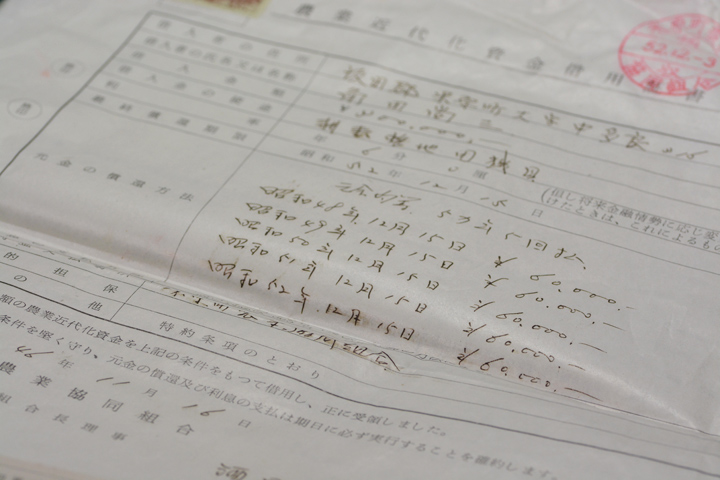 農業近代化資金借用証書
52.12.-3
借入者の住所
借入者の氏名又は名称
借入金額
借入金の使途
利率
最終償還期限
年 6分 0厘
昭和 52年 12月 15日
(但し将来金融情勢に応じ変
けたときは、これによるもの
元金の償還方法
5ヵ年 5回払
昭和48年 12月 15日 ¥ 60,000.—
昭和49年 12月 15日 ¥ 60,000.—
昭和50年 12月 15日 ¥ 60,000.—
昭和51年 12月 15日 ¥ 60,000.—
昭和52年 12月 15日 ¥ 60,000.—
的担保
の他
特約条項のとおり
額の農業近代化資金を上記の条件をもつて借用し、正に受領しました。
条件を堅く守り、元金の償還及び利息の支払は期日に必ず実行することを確約します。
46年 11月 16日
農業協同組合
組合長理事